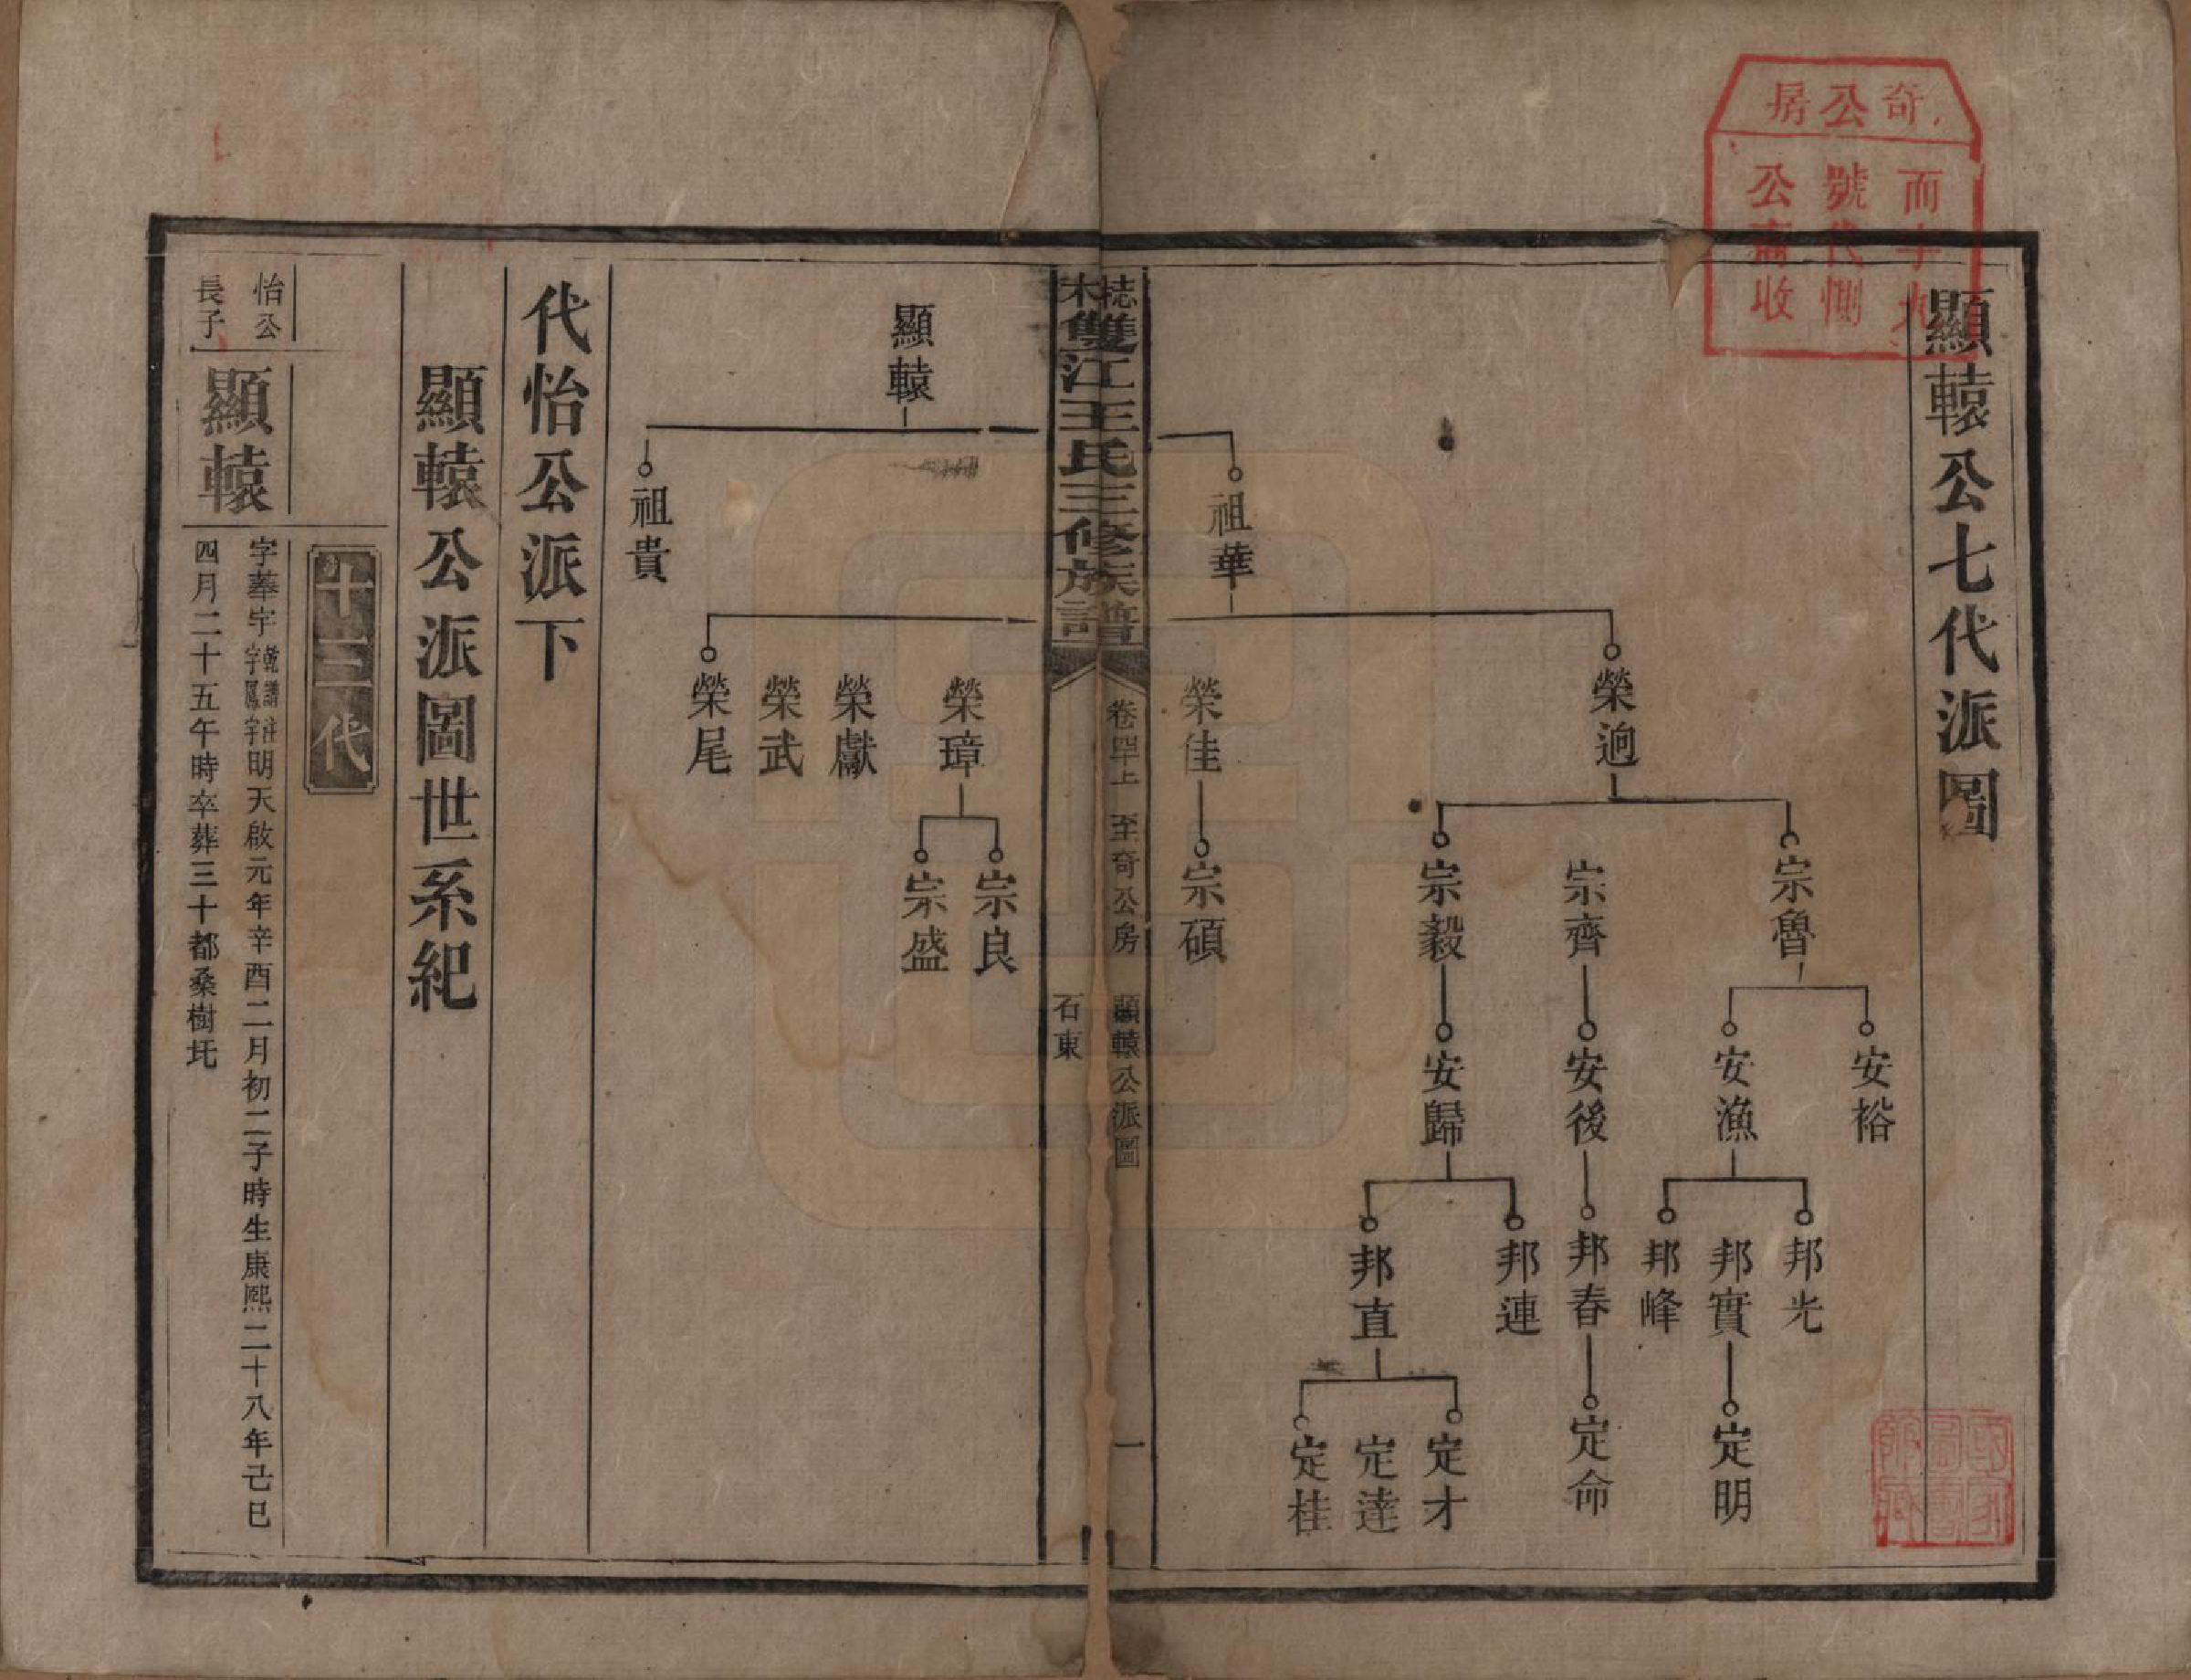 奇公房
而字九
號代惻
公收
顯轅公七代派圖
祖華
榮逈
宗魯
安裕
安漁
邦光
邦實
定明
邦峰
宗齊
安後
邦春
定命
宗毅
安歸
邦連
邦直
定才
定達
定桂
榮佳
宗碩
桂林
雙江王氏三修族譜
卷四十上
至奇公房
顯轅公派圖
一
石東
顯轅
榮璋
宗良
宗盛
榮獻
榮武
榮尾
祖貴
代怡公派下
顯轅公派圖世系紀
十三代
怡公
長子
顯轅
字奉宇乾譜注字鳳宇明天啟元年辛酉二月初二子時生康熙二十八年己巳
四月二十五午時卒葬三十都桑樹圫